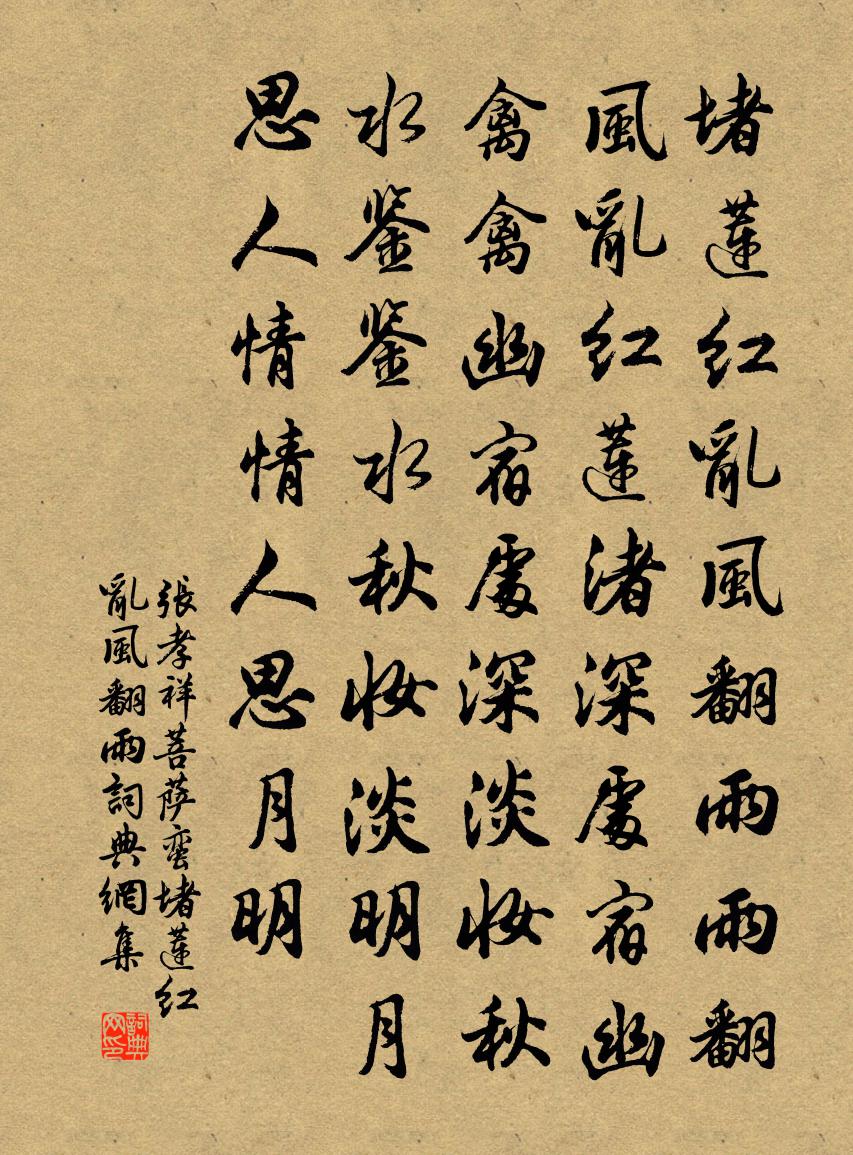 堵蓮紅亂風翻雨雨翻
風亂紅蓮渚深處宿幽
禽禽幽宿處深淡妝秋
水鉴鉴水秋妝淡明月
思人情情人思月明
張孝祥菩萨蛮堵蓮紅
亂風翻雨詞典網集
詞典
网印